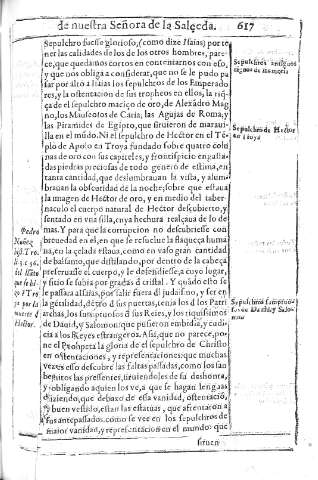 de nuestra Señora de la Salceda. 617
Sepulchro fuesse glorioso, (como dize Isaias) por te
ner las calidades de los de los otros hombres, pare-
ce, que quedamos cortos en contentarnos con eso,
y que nos obliga a considerar, que no se le pudo pa
sar por alto a Isaias los sepulchros de los Emperado
res, y la ostentacion de sus tropheos en ellos, la riq
ça de el sepulchro maciço de oro, de Alexādro Mag
no, los Mauseolos de Caria, las Agujas de Roma, y
las Piramides de Egipto, que siruieron de maraui-
lla en el mūdo. Ni el sepulchro de Hector en el Tē
plo de Apolo en Troya fundado sobre quatro colū
nas de oro con sus capiteles, y frontispicio engasta
das piedras preciosas de todo genero de estima, en
tanta cantidad, que deslumbrauan la vista, y alum-
brauan la obscuridad de la noche, sobre que estaua
la imagen de Hector de oro, y en medio del taber-
naculo el cuerpo natural de Hector descubierto, y
sentado en vna silla, cuya hechura realçaua de lo de
mas. Y para que la corrupcion no descubriesse con
breuedad en el, en que se resuelue la flaqueza huma
na, en la celada estaua, como en vaso gran cantidad
de balsamo, que distilando, por dentro de la cabeça
preseruasse el cuerpo, y le defendiesse, a cuyo lugar,
y sitio se subia por gradas de cristal. Y quādo esto se
le passasse a Isaias, por salir fuera del judaismo, y ser en
la gētilidad, dētro de sus puertas, tenia los de los Patri
archas, los sumptuosos de sus Reyes, y los riquissimos
de Dauid, y Salomon: que pusieron embidia, y cudi-
cia a los Reyes estrangeros. Assi, que no parece, po-
ne el Propheta la gloria de el sepulchro de Christo
en ostentaciones, y representaciones: que muchas
vezes esso descubre las faltas passadas, como los san
benitos las presentes, siruiendoles de su deshonra,
y obligando a quien los ve, a que se hagan lenguas
diziendo, que debaxo de essa vanidad, ostentaciō,
y buen vestido, estan las estatuas, que afrentaron a
sus antepassados: como se vee en los sepulchros de
maior vanidad, y representacion en el mundo: que
siruen
Sepulchros antiguos
dignos de memoria
Sepulchro de Hector
en Troya
Sepulchros sumptuo-
sos de Dauid y Salo-
mon
Pedro
Nuñez
hist. Tro.
li.5.c.56.
del
que se hi-
zo ē Tro
ya por la
muerte d
Hector.